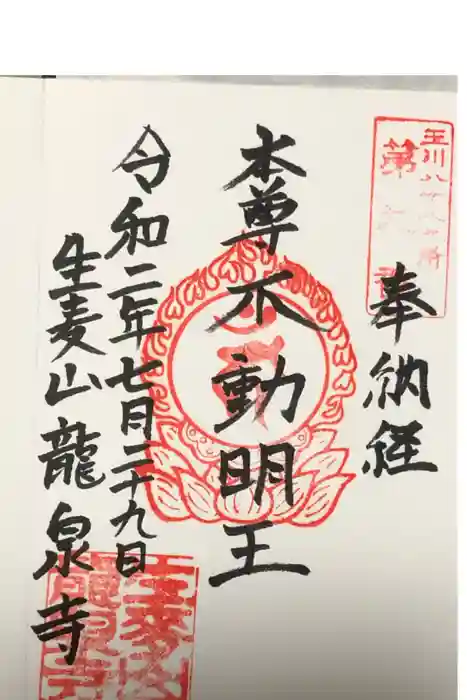 玉川八十八ヶ所
第
奉納経
本尊不動明王
令和二年七月二十九日
生麦山龍泉寺
生麦山
龍泉寺